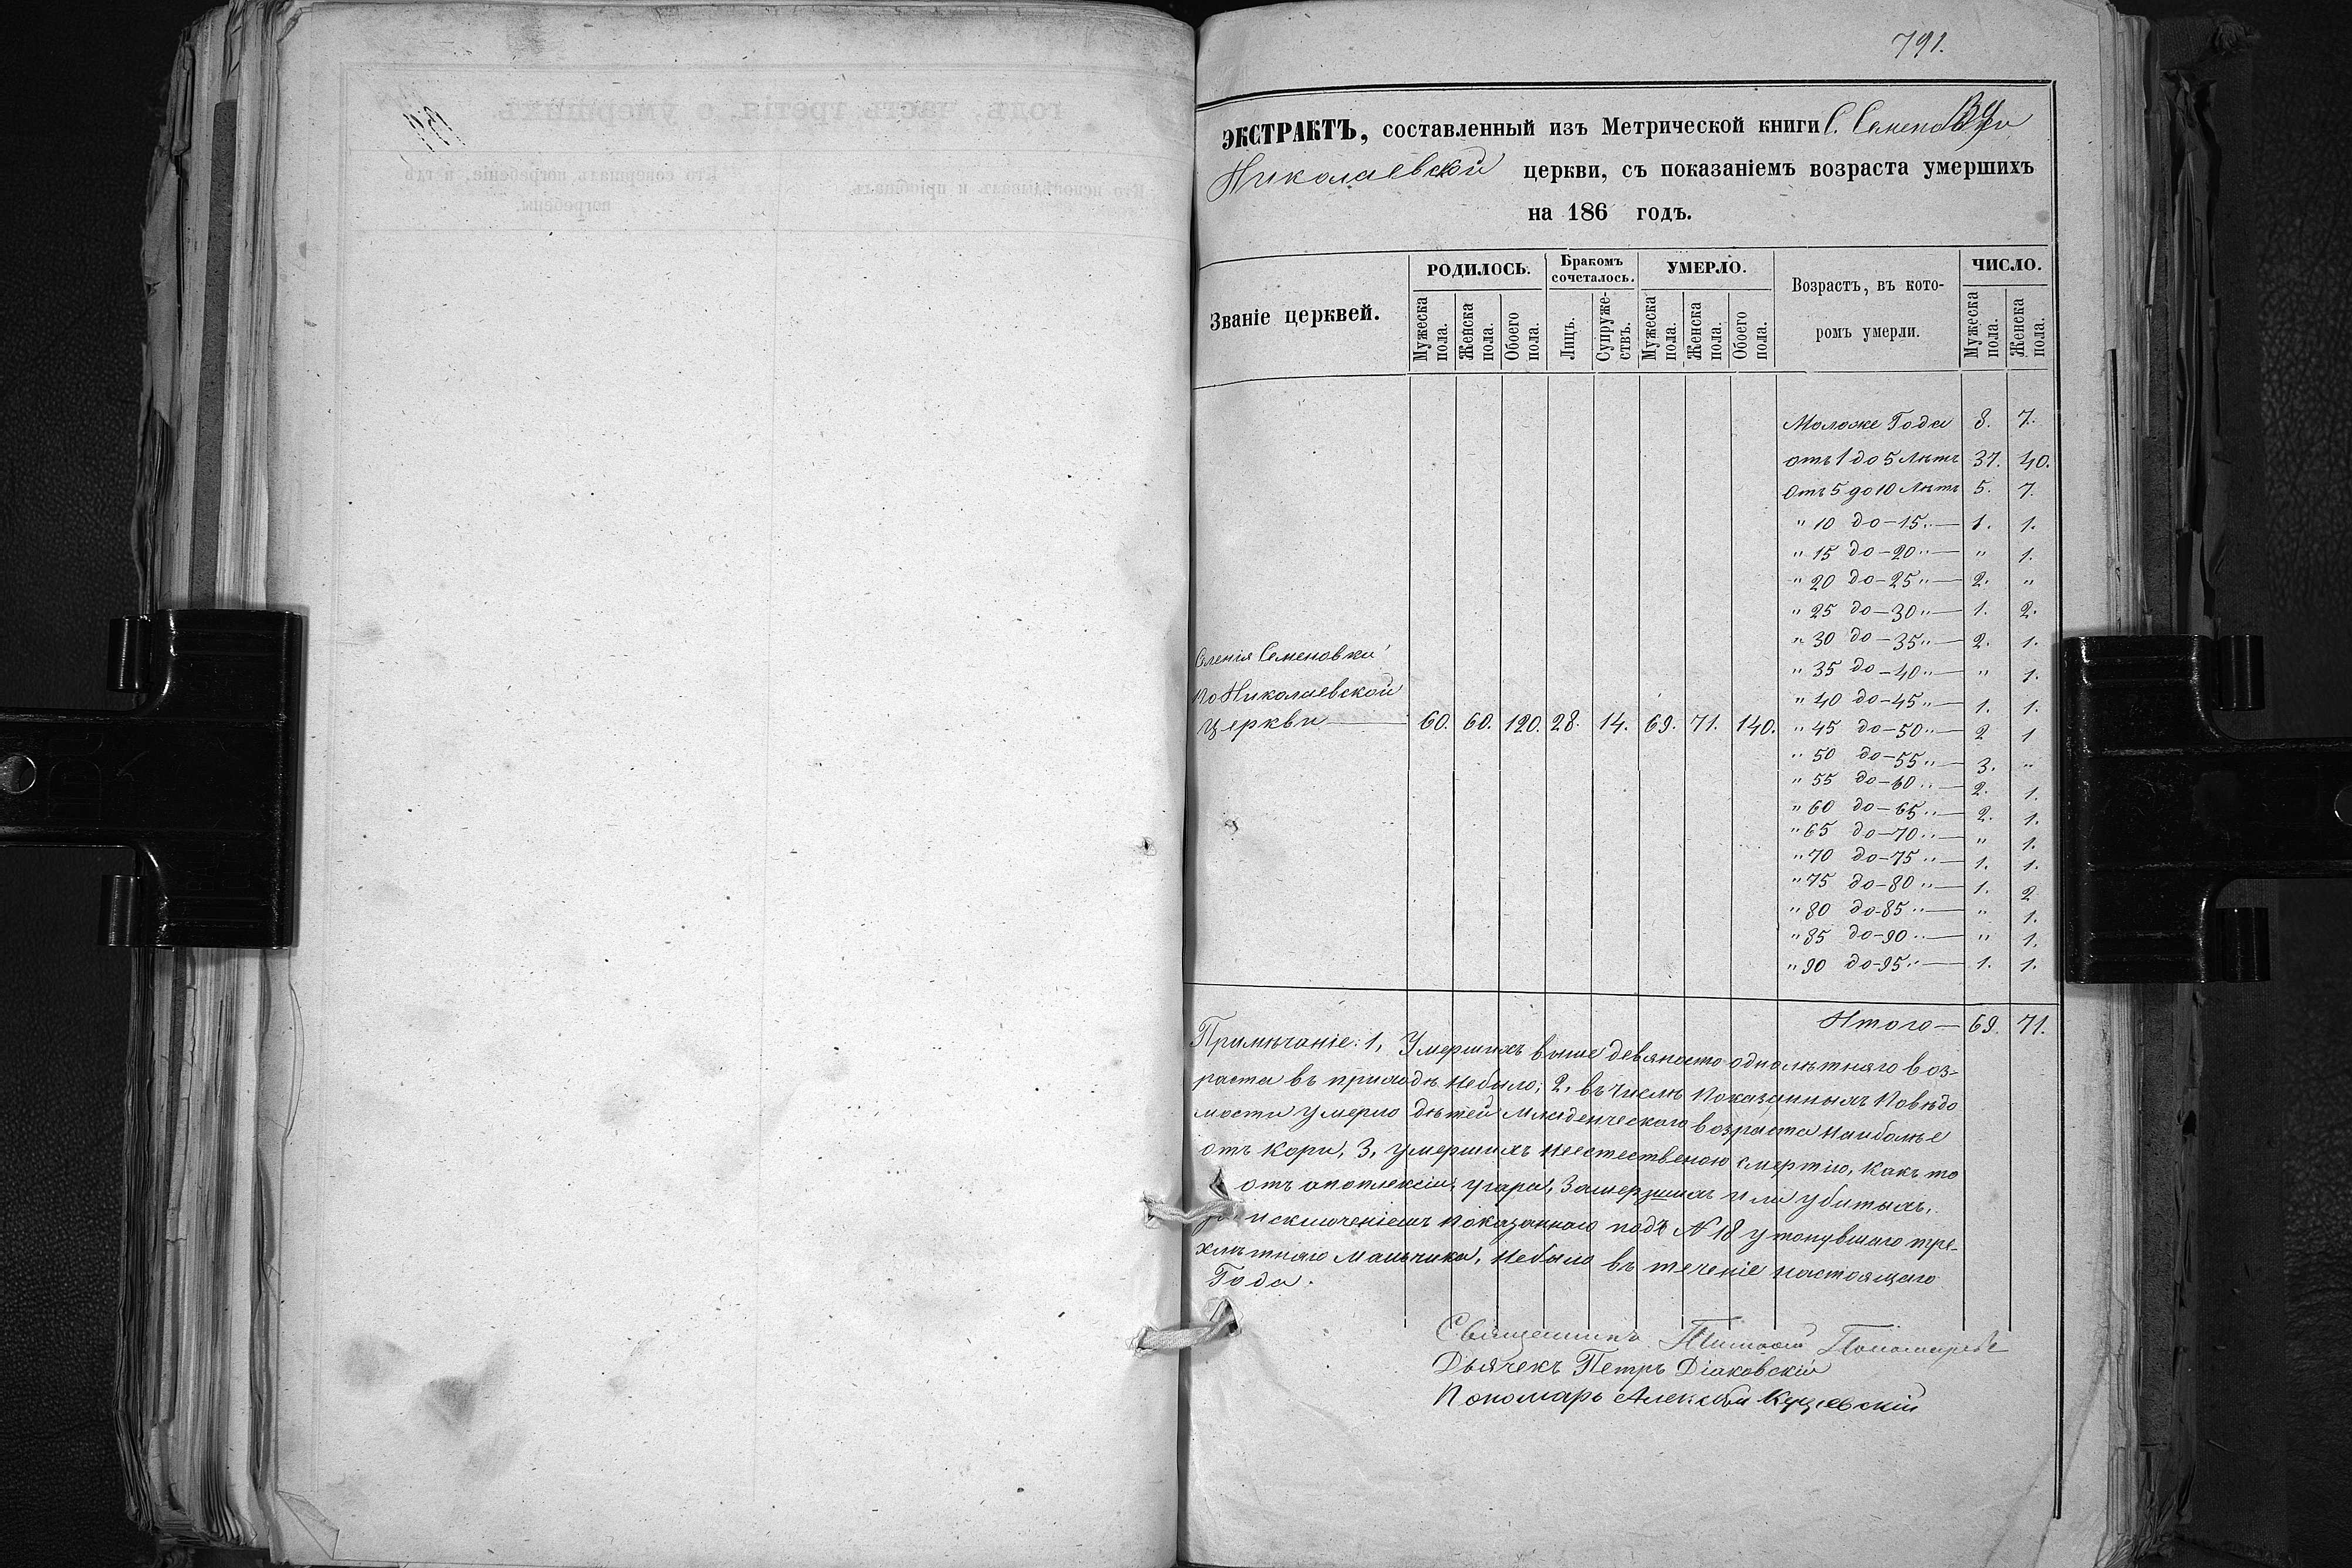 791.
ЭКСТРАКТЪ, составленный изъ Метрической книги С. Семеновки
Николаевской церкви, съ показаніемъ возраста умершихъ
на 186 годъ.
Званіе церквей.
РОДИЛОСЬ.
Мужеска пола.
Женска пола.
Обоего пола.
Бракомъ сочеталось.
Лицъ.
Супружествъ.
УМЕРЛО.
Мужеска пола.
Женска пола.
Обоего пола.
Возрастъ, въ кото-
ромъ умерли.
ЧИСЛО.
Мужеска пола.
Женска пола.
Моложе Года 8. 7.
отъ 1 до 5 Лѣтъ 37. 40.
Отъ 5 до 10 Лѣтъ 5. 7.
" 10 до - 15 " — 1. 1.
" 15 до - 20 " — " 1.
" 20 до - 25 " — 2. "
" 25 до - 30 " — 1. 2.
" 30 до - 35 " — 2. 1.
" 35 до - 40 " — " 1.
" 40 до - 45 " — 1. 1.
" 45 до - 50 " — 2 1
" 50 до - 55 " — 3. "
" 55 до - 60 " — 2. 1.
" 60 до - 65 " — 2. 1.
" 65 до - 70 " — " 1.
" 70 до - 75 " — 1. 1.
" 75 до - 80 " — 1. 2
" 80 до - 85 " — " 1.
" 85 до - 90 " — " 1.
" 90 до - 95 " — 1. 1.
Селенія Семеновки
по Николаевской
Церкви — 60. 60. 120. 28. 14. 69. 71. 140.
Итого — 69. 71.
Примѣчаніе: 1, Умершихъ выше девяносто однолѣтняго воз-
раста въ приходѣ небыло; 2, въ числѣ показанныхъ по вѣдо
мости умерло дѣтей младенческаго возраста наиболѣе
отъ кори, 3, умершихъ неестественою смертію, какъ то
отъ апоплексіи, угара, замерзшихъ или убитыхъ,
за исключеніемъ показаннаго подъ № 18 утонувшаго тре-
хлѣтняго мальчика, небыло въ теченіе настоящаго
Года.
Священникъ Пономаревъ
Дьячекъ Петръ Діаковскій
Пономарь Алексѣй